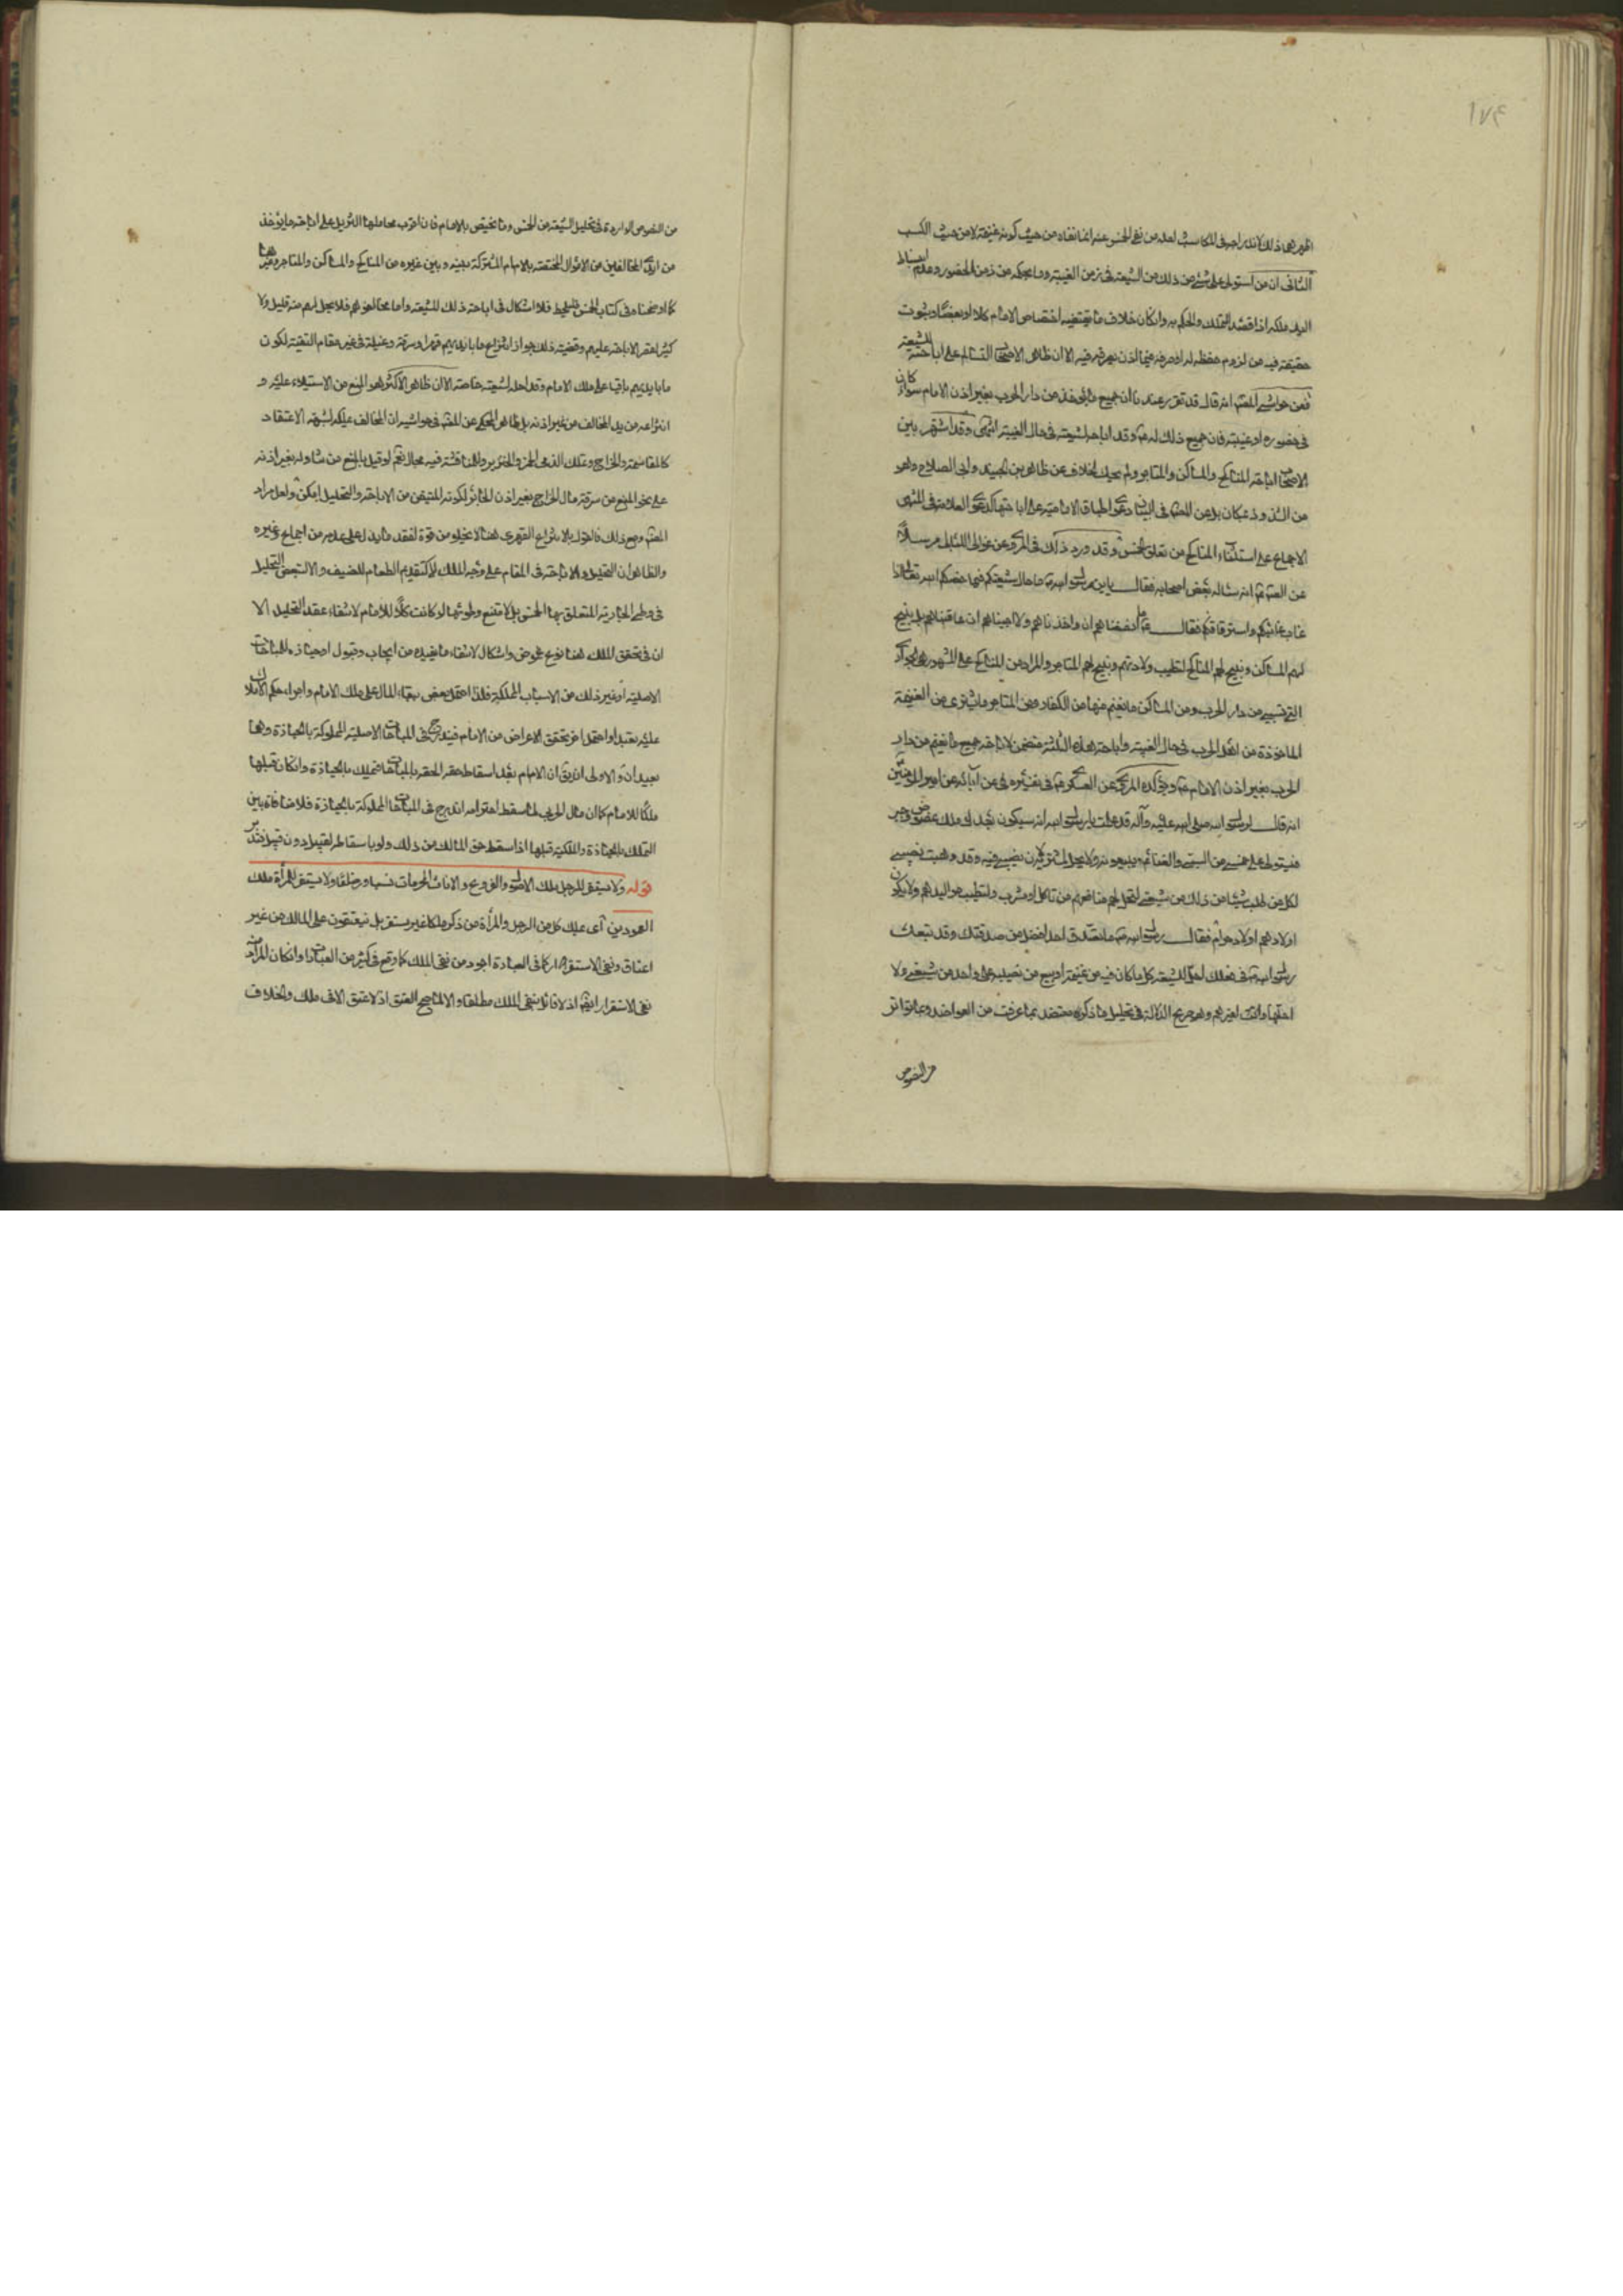 ١٧٤
اظهرهما ذلك لاندراجه في المكاسب لعله من نفي الخمس عنه انما نفاه من حيث كونه غنيمة لا من حيث الكسب
الثاني ان من استولى على شئ من ذلك من الشيعة في زمن الغيبة وما بحكمه من زمن الحضور وعدم انبساط
اليد ملكه اذا قصد التملك والحكم به وان كان خلاف ما يقتضيه اختصاص الامام كلا او بعضا وثبوت
حقيقته فيه من لزوم حفظه له او صرفه فيما اذن بصرفه فيه الا ان ظاهر الاصحاب التسالم على اباحته للشيعة
فعن حواشي الشهيد انه قال قد تقرر عندنا ان جميع ما يؤخذ من دار الحرب بغير اذن الامام سواء كان
في حضوره او غيبته فان جميع ذلك له ع وقد اباحه لشيعته في حال الغيبة انتهى وقد اشتهر بين
الاصحاب اباحة المناكح والمساكن والمتاجر ولم يحك الخلاف عن ظاهر بن الجنيد وابي الصلاح وهو
من الشذوذ بمكان بل عن الشهيد في البيان دعوى اطباق الامامية على اباحتها كدعوى العلامة في المنتهى
الاجماع على استثناء المناكح من تعلق الخمس وقد ورد ذلك في المروي عن غوالي اللئالي مرسلا
عن الصادق ع انه سئله بعض اصحابه فقال يابن رسول الله ص ما حال شيعتكم فيما خصكم الله تعالى اذا
غاب غائبكم واستتر قائمكم فقال ع ما انصفناهم ان واخذناهم ولا احببناهم ان عاقبناهم بل نبيح
لهم المساكن ونبيح لهم المناكح لتطيب ولادتهم ونبيح لهم المتاجر والمراد من المناكح على المشهور هي الجواري
التي تسبى من دار الحرب ومن المساكن ما يغنم منها من الكفار ومن المتاجر ما يشترى من الغنيمة
الماخوذة من اهل الحرب في حال الغيبة واباحة هذه الثلثة متضمن لاباحة جميع ما يغنم من دار
الحرب بغير اذن الامام ع ويؤكده المروي عن العسكري ع في تفسيره عن آبائه عن امير المؤمنين
انه قال لرسول الله صلى الله عليه وآله قد علمت يا رسول الله انه سيكون بعدك ملك عضوض وجبر
فيستولى على خمسي من السبي والغنائم فيبيعونه ولا يحل لمشتريه لان نصيبي فيه وقد وهبت نصيبي
لكل من ملك شيئا من ذلك من شيعتي لتحل لهم منافعهم من ماكل او مشرب ولتطيب مواليدهم ولا يكون
اولادهم اولاد حرام فقال رسول الله ص ما تصدق احد افضل من صدقتك وقد تبعك
رسول الله ص في فعلك احل الشيعة كل ما كان فيه من غنيمة او بيع من نصيبه على واحد من شيعتي ولا
احلها وانت لغيرهم وهو صريح الدلالة في تحليل ما ذكره معتضد بما عرفت من العواضد وبما تواتر
من النصوص
من النصوص الواردة في تحليل الشيعة من الخمس وما يختص بالامام فان اقرب محاملها التنزيل على اباحة ما يؤخذ
من ايدي المخالفين من الاموال المختصة بالامام المشتركة بينه وبين غيره من المناكح والمساكن والمتاجر وغيرها
كما اوضحناه في كتاب الخمس فلا اشكال في اباحة ذلك للشيعة واما مخالفوهم فلا يحل لهم منه قليل ولا
كثير لقصر الاباحة عليهم وقضيته ذلك جواز انتزاع ما بايديهم قهرا وسرقة وغيلة في غير مقام التقية لكون
ما بايديهم باقيا على ملك الامام وقد احله لشيعته خاصة الا ان ظاهر الاكثر هو المنع من الاستيلاء عليه و
انتزاعه من يد المخالف من غير اذنه بل ظاهر المحكي عن الشهيد في حواشيه ان المخالف يملكه لشبهة الاعتقاد
كالمقاسمة والخراج وتملك الذمي الخمر والخنزير وللمناقشة فيه مجال نعم لو قيل بالمنع من تناوله بغير اذنه
على نحو المنع من سرقة مال الخراج بغير اذن الجائر لكونه المتيقن من الاباحة والتحليل امكن ولعل مراد
الشهيد ومع ذلك فالقول بالانتزاع القهري هنا لا يخلو من قوة لفقد ما يدل على عدمه من اجماع وغيره
والظاهر ان التحليل والاباحة في المقام على وجه الملك لا كتقديم الطعام للضيف والا لتبعض التحليل
في وطي الجارية المتعلق بها الخمس بل لامتنع وطوئها لو كانت كلا للامام لانتفاء عقد التحليل الا
ان في تحقق الملك هنا نوع غموض واشكال لانتفاء ما يفيده من ايجاب وقبول او حيازة المباحات
الاصلية او غير ذلك من الاسباب المملكة فلذا احتمل بعض بقاء المال على ملك الامام واجراء حكم الاملاك
عليه تعبدا واحتمل اخر تحقق الاعراض من الامام فيندرج في المباحات الاصلية المملوكة بالحيازة وهما
بعيدان والاولى ان يق ان الامام بعد اسقاط حقه الحقه بالمباحات فيملك بالحيازة وان كان قبلها
ملكا للامام كما ان مال الحربي لما سقط احترامه اندرج في المباحات المملوكة بالحيازة فلا منافاة بين
التملك بالحيازة والملكية قبلها اذا سقط حق المالك من ذلك ولو باسقاطه لقبيل دون قبيل فتدبر
قوله ولا يستقر للرجل ملك الاصول والفروع والاناث المحرمات نسبا ورضاعا ولا يستقر للمرأة ملك
العمودين اي يملك كل من الرجل والمرأة من ذكر ملكا غير مستقر بل ينعتقون على المالك من غير
اعتاق ونفي الاستقرار كما في العبارة اجود من نفي الملك كما وقع في كثير من العبارات وان كان المراد منه
نفي الاستقرار ايضا اذ لا قائل بنفي الملك مطلقا والا لما صح العتق اذ لا عتق الا في ملك والخلاف